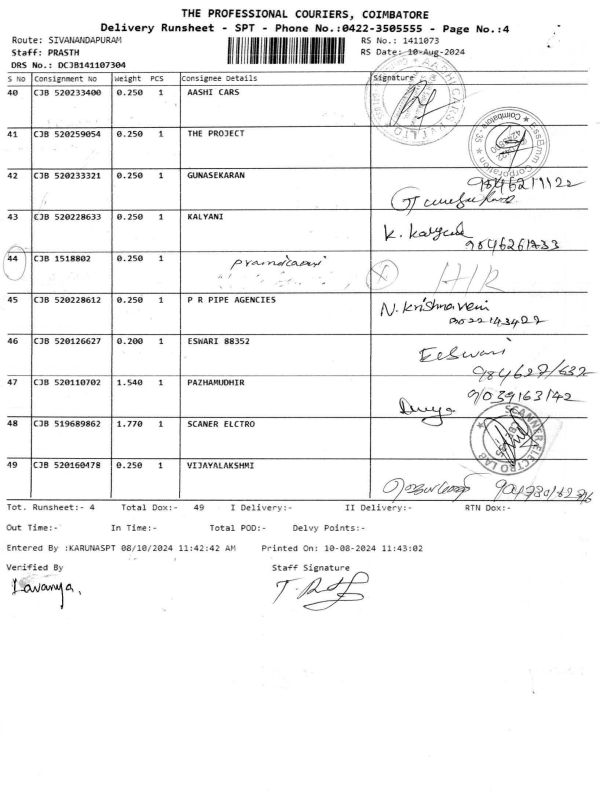 THE PROFESSIONAL COURIERS, COIMBATORE
Delivery Runsheet - SPT - Phone No.:0422-3505555 - Page No.:4
Route: SIVANANDAPURAM
RS No.: 1411073
Staff: PRASTH
RS Date: 10-Aug-2024
DRS No.: DCJB141107304
S No Consignment No Weight PCS Consignee Details Signature
40 CJB 520233400 0.250 1 AASHI CARS
41 CJB 520259054 0.250 1 THE PROJECT
42 CJB 520233321 0.250 1 GUNASEKARAN
43 CJB 520228633 0.250 1 KALYANI K. Kalyani
9846261733
44 CJB 1518802 0.250 1
45 CJB 520228612 0.250 1 P R PIPE AGENCIES N. Krishnaveni
46 CJB 520126627 0.200 1 ESWARI 88352 Eswari
47 CJB 520110702 1.540 1 PAZHAMUDHIR
9039163142
48 CJB 519689862 1.770 1 SCANER ELCTRO SCANNER ELECTRO LAB
49 CJB 520160478 0.250 1 VIJAYALAKSHMI
Tot. Runsheet:- 4 Total Dox:- 49 I Delivery:- II Delivery:- RTN Dox:-
Out Time:- In Time:- Total POD:- Delvy Points:-
Entered By :KARUNASPT 08/10/2024 11:42:42 AM Printed On: 10-08-2024 11:43:02
Verified By Staff Signature
Lavanya.